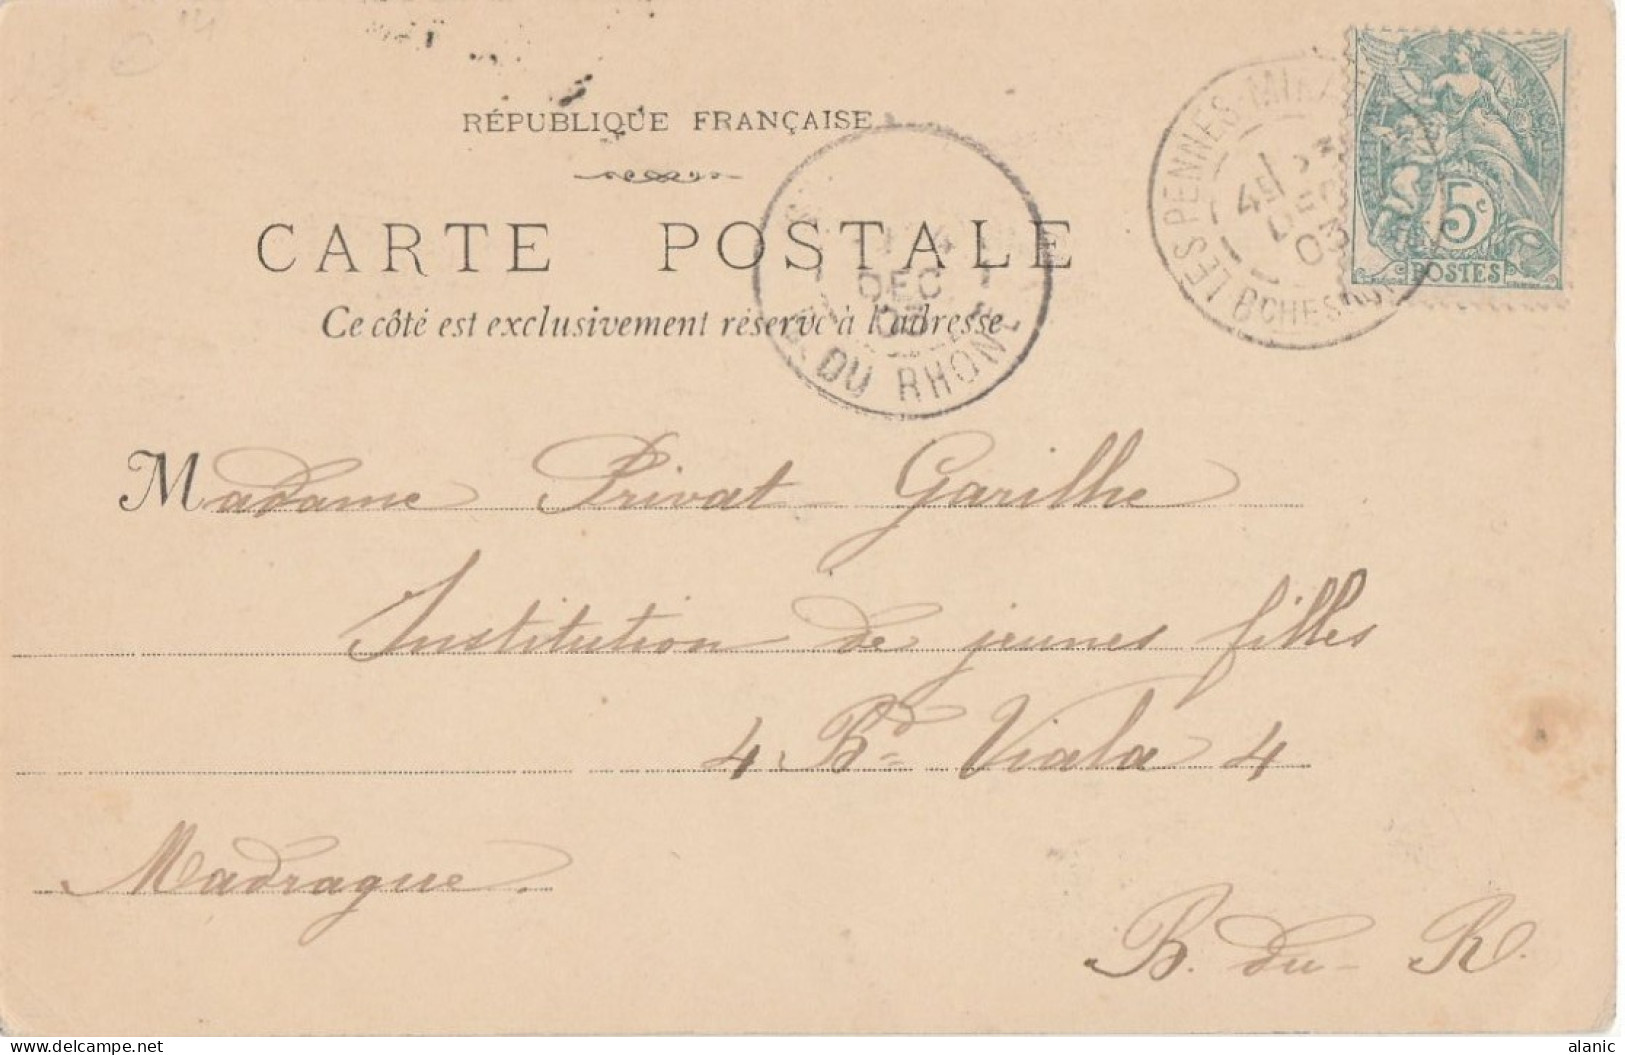 RÉPUBLIQUE FRANÇAISE
CARTE POSTALE
Ce côté est exclusivement réservé à l'adresse
LES PENNES-MIRA
DEC
03
BCHES
5c
POSTES
DEC
03
DU RHONE
Madame Privat Garilhe
Institution de jeunes filles
4 Bd Viala 4
Madrague.
B. du R.
www.delcampe.net
alanic